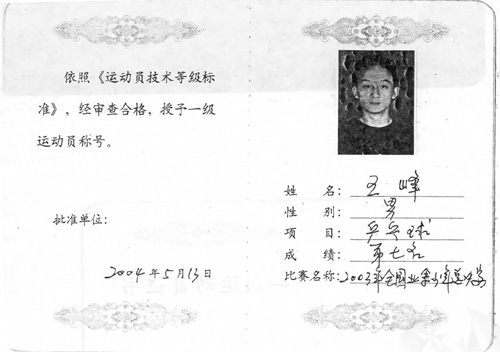 依照《运动员技术等级标
准》，经审查合格，授予一级
运动员称号。
批准单位：
2004年5月13日
姓 名：王峰
性 别：男
项 目：乒乓球
成 绩：第七名
比赛名称：2003年全国业余少年总决赛